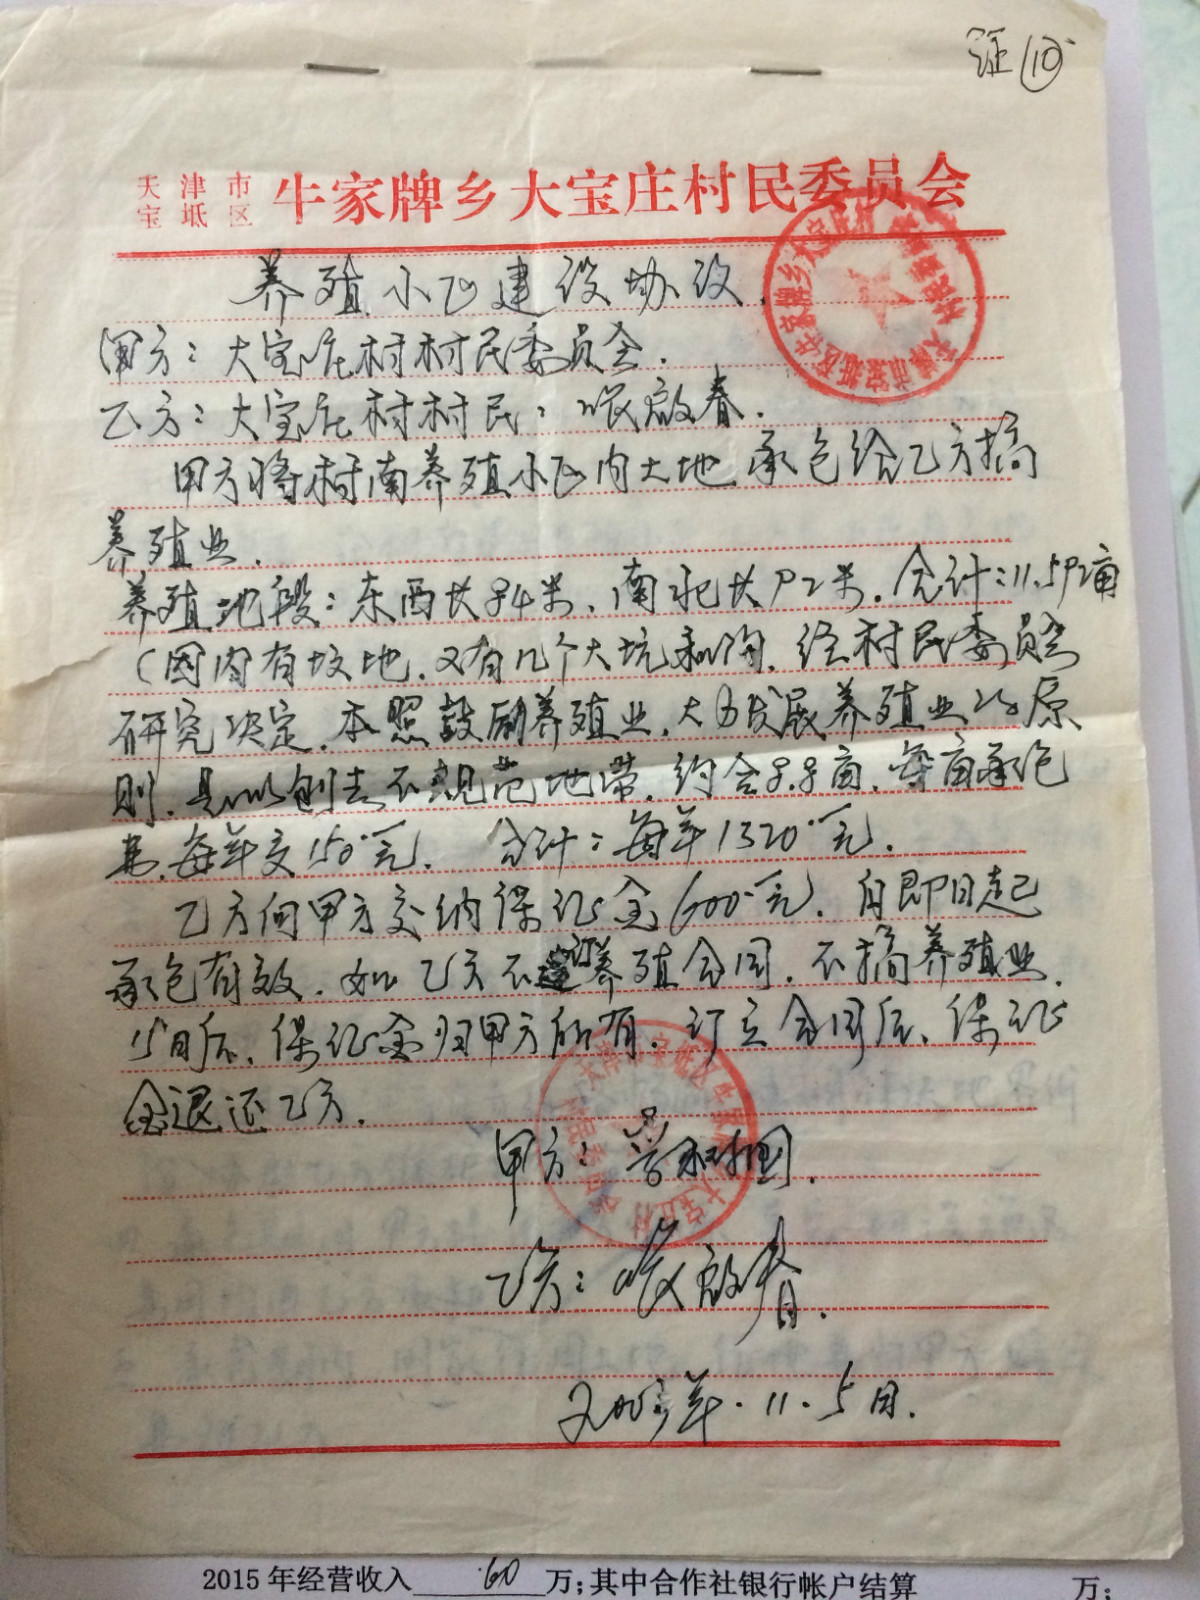 证⑩
天津市
宝坻区
牛家牌乡大宝庄村民委员会
养殖小区建设协议.
甲方:大宝庄村村民委员会.
乙方:大宝庄村村民:启春.
甲方将村南养殖小区内土地承包给乙方搞
养殖业.
养殖地段:东西长84米、南北长92米.合计:11.59亩
(因内有坟地.又有几个大坑和沟.经村民委员会
研究决定.本照鼓励养殖业.大力发展养殖业的原
则.是以刨去不规范地带.约合8.8亩.每亩承包
费.每年交150元. 合计:每年1320元.
乙方向甲方交纳保证金600元.自即日起
承包有效.如乙方不订养殖合同.不搞养殖业.
15日后、保证金归甲方所有.订立合同后、保证
金退还乙方.
甲方:
乙方:启春.
年.11.5日.
2015年经营收入 60 万;其中合作社银行帐户结算 万;